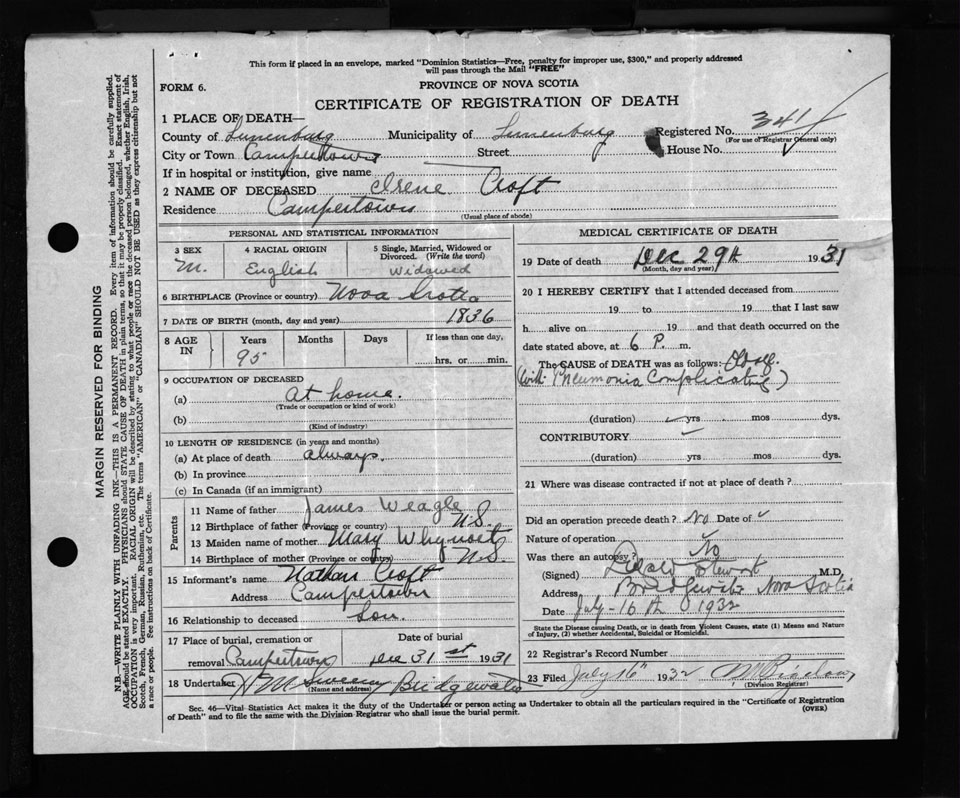 This form if placed in an envelope, marked "Dominion Statistics—Free, penalty for improper use, $300," and properly addressed
will pass through the Mail "FREE"
FORM 6.
PROVINCE OF NOVA SCOTIA
CERTIFICATE OF REGISTRATION OF DEATH
1 PLACE OF DEATH—
County of Lunenburg Municipality of Lunenburg Registered No. 341
(For use of Registrar General only)
City or Town Campertown Street House No.
If in hospital or institution, give name
2 NAME OF DECEASED Irene Croft
Residence Campertown
(Usual place of abode)
PERSONAL AND STATISTICAL INFORMATION
3 SEX 4 RACIAL ORIGIN 5 Single, Married, Widowed or
Divorced. (Write the word)
M. English Widowed
6 BIRTHPLACE (Province or country) Nova Scotia
7 DATE OF BIRTH (month, day and year) 1836
8 AGE IN Years Months Days If less than one day,
95 hrs. or min.
9 OCCUPATION OF DECEASED
(a) At home.
(Trade or occupation or kind of work)
(b)
(Kind of industry)
10 LENGTH OF RESIDENCE (in years and months)
(a) At place of death always.
(b) In province
(c) In Canada (if an immigrant)
Parents
11 Name of father James Weagle
12 Birthplace of father (Province or country) N.S.
13 Maiden name of mother Mary Whynott
14 Birthplace of mother (Province or country) N.S.
15 Informant's name Nathan Croft
Address Campertown
16 Relationship to deceased Son
17 Place of burial, cremation or Date of burial
removal Campertown Dec 31st 1931
18 Undertaker H M Sweeny Bridgewater
(Name and address)
MEDICAL CERTIFICATE OF DEATH
19 Date of death Dec 29th 1931
(Month, day and year)
20 I HEREBY CERTIFY that I attended deceased from
19 to 19 that I last saw
h alive on 19 and that death occurred on the
date stated above, at 6 P. m.
The CAUSE OF DEATH was as follows:
(with Pneumonia Complicating)
(duration) yrs mos dys.
CONTRIBUTORY
(duration) yrs. mos. dys.
21 Where was disease contracted if not at place of death?
Did an operation precede death? No Date of
Nature of operation
Was there an autopsy? No
(Signed) M.D.
Address Bridgewater Nova Scotia
Date July 16th 1932
State the Disease causing Death, or in death from Violent Causes, state (1) Means and Nature
of Injury, (2) whether Accidental, Suicidal or Homicidal.
22 Registrar's Record Number
23 Filed July 16th 1932
(Division Registrar)
Sec. 46—Vital Statistics Act makes it the duty of the Undertaker or person acting as Undertaker to obtain all the particulars required in the "Certificate of Registration
of Death" and to file the same with the Division Registrar who shall issue the burial permit.
(OVER)
MARGIN RESERVED FOR BINDING
N.B.—WRITE PLAINLY WITH UNFADING INK—THIS IS A PERMANENT RECORD. Every item of information should be carefully supplied.
AGE should be stated EXACTLY. PHYSICIANS should STATE CAUSE OF DEATH in plain terms, so that it may be properly classified. Exact statement of
OCCUPATION is very important. RACIAL ORIGIN will be described by stating to what people or race the deceased person belonged, whether English, Irish,
Scotch, French, German, Russian, Ruthenian, etc. The terms "AMERICAN" or "CANADIAN" SHOULD NOT BE USED as they express citizenship but not
a race or people. See instructions on back of Certificate.